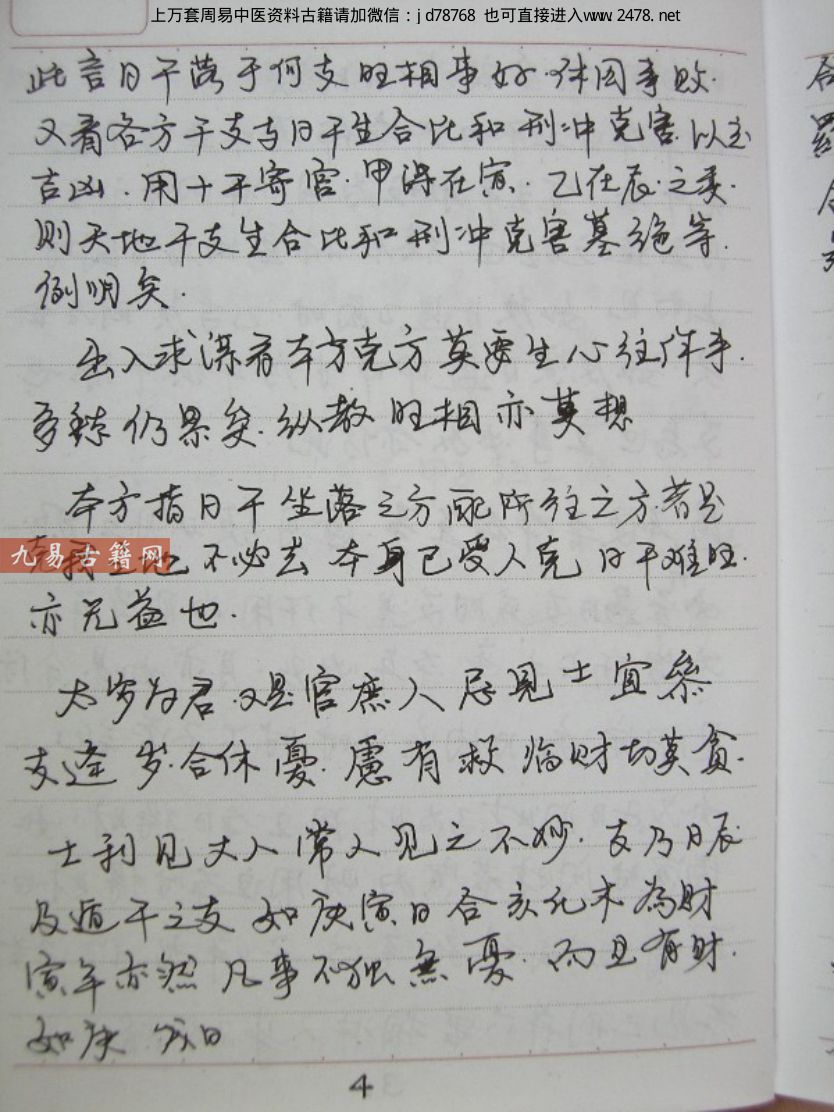 上万套周易中医资料古籍请加微信：jd78768 也可直接进入www.2478.net
此言日干落于何支旺相事好.休囚事败.
又看各方干支与日干生合比和刑冲克害.以定
吉凶.用十干寄宫.甲课在寅.乙在辰之类.
则天地干支生合比和刑冲克害墓绝等.
例明矣.
出入求谋看本方克方莫要生心往作事.
多 仍累矣.纵教旺相亦莫想
本方指日干坐落之方配所往之方.若是
克我之地不必去 本身已受人克 日干难旺.
九易古籍网
亦无益也.
太岁为君又是官庶人忌见士宜参
支逢岁合休憂.慮有救临财切莫贪.
士利见大人常人见之不妙.支乃日辰
及遁干之支 如庚寅日合亥化木為财
寅年亦然 凡事不独無憂.而且有财.
如庚 日
4
合